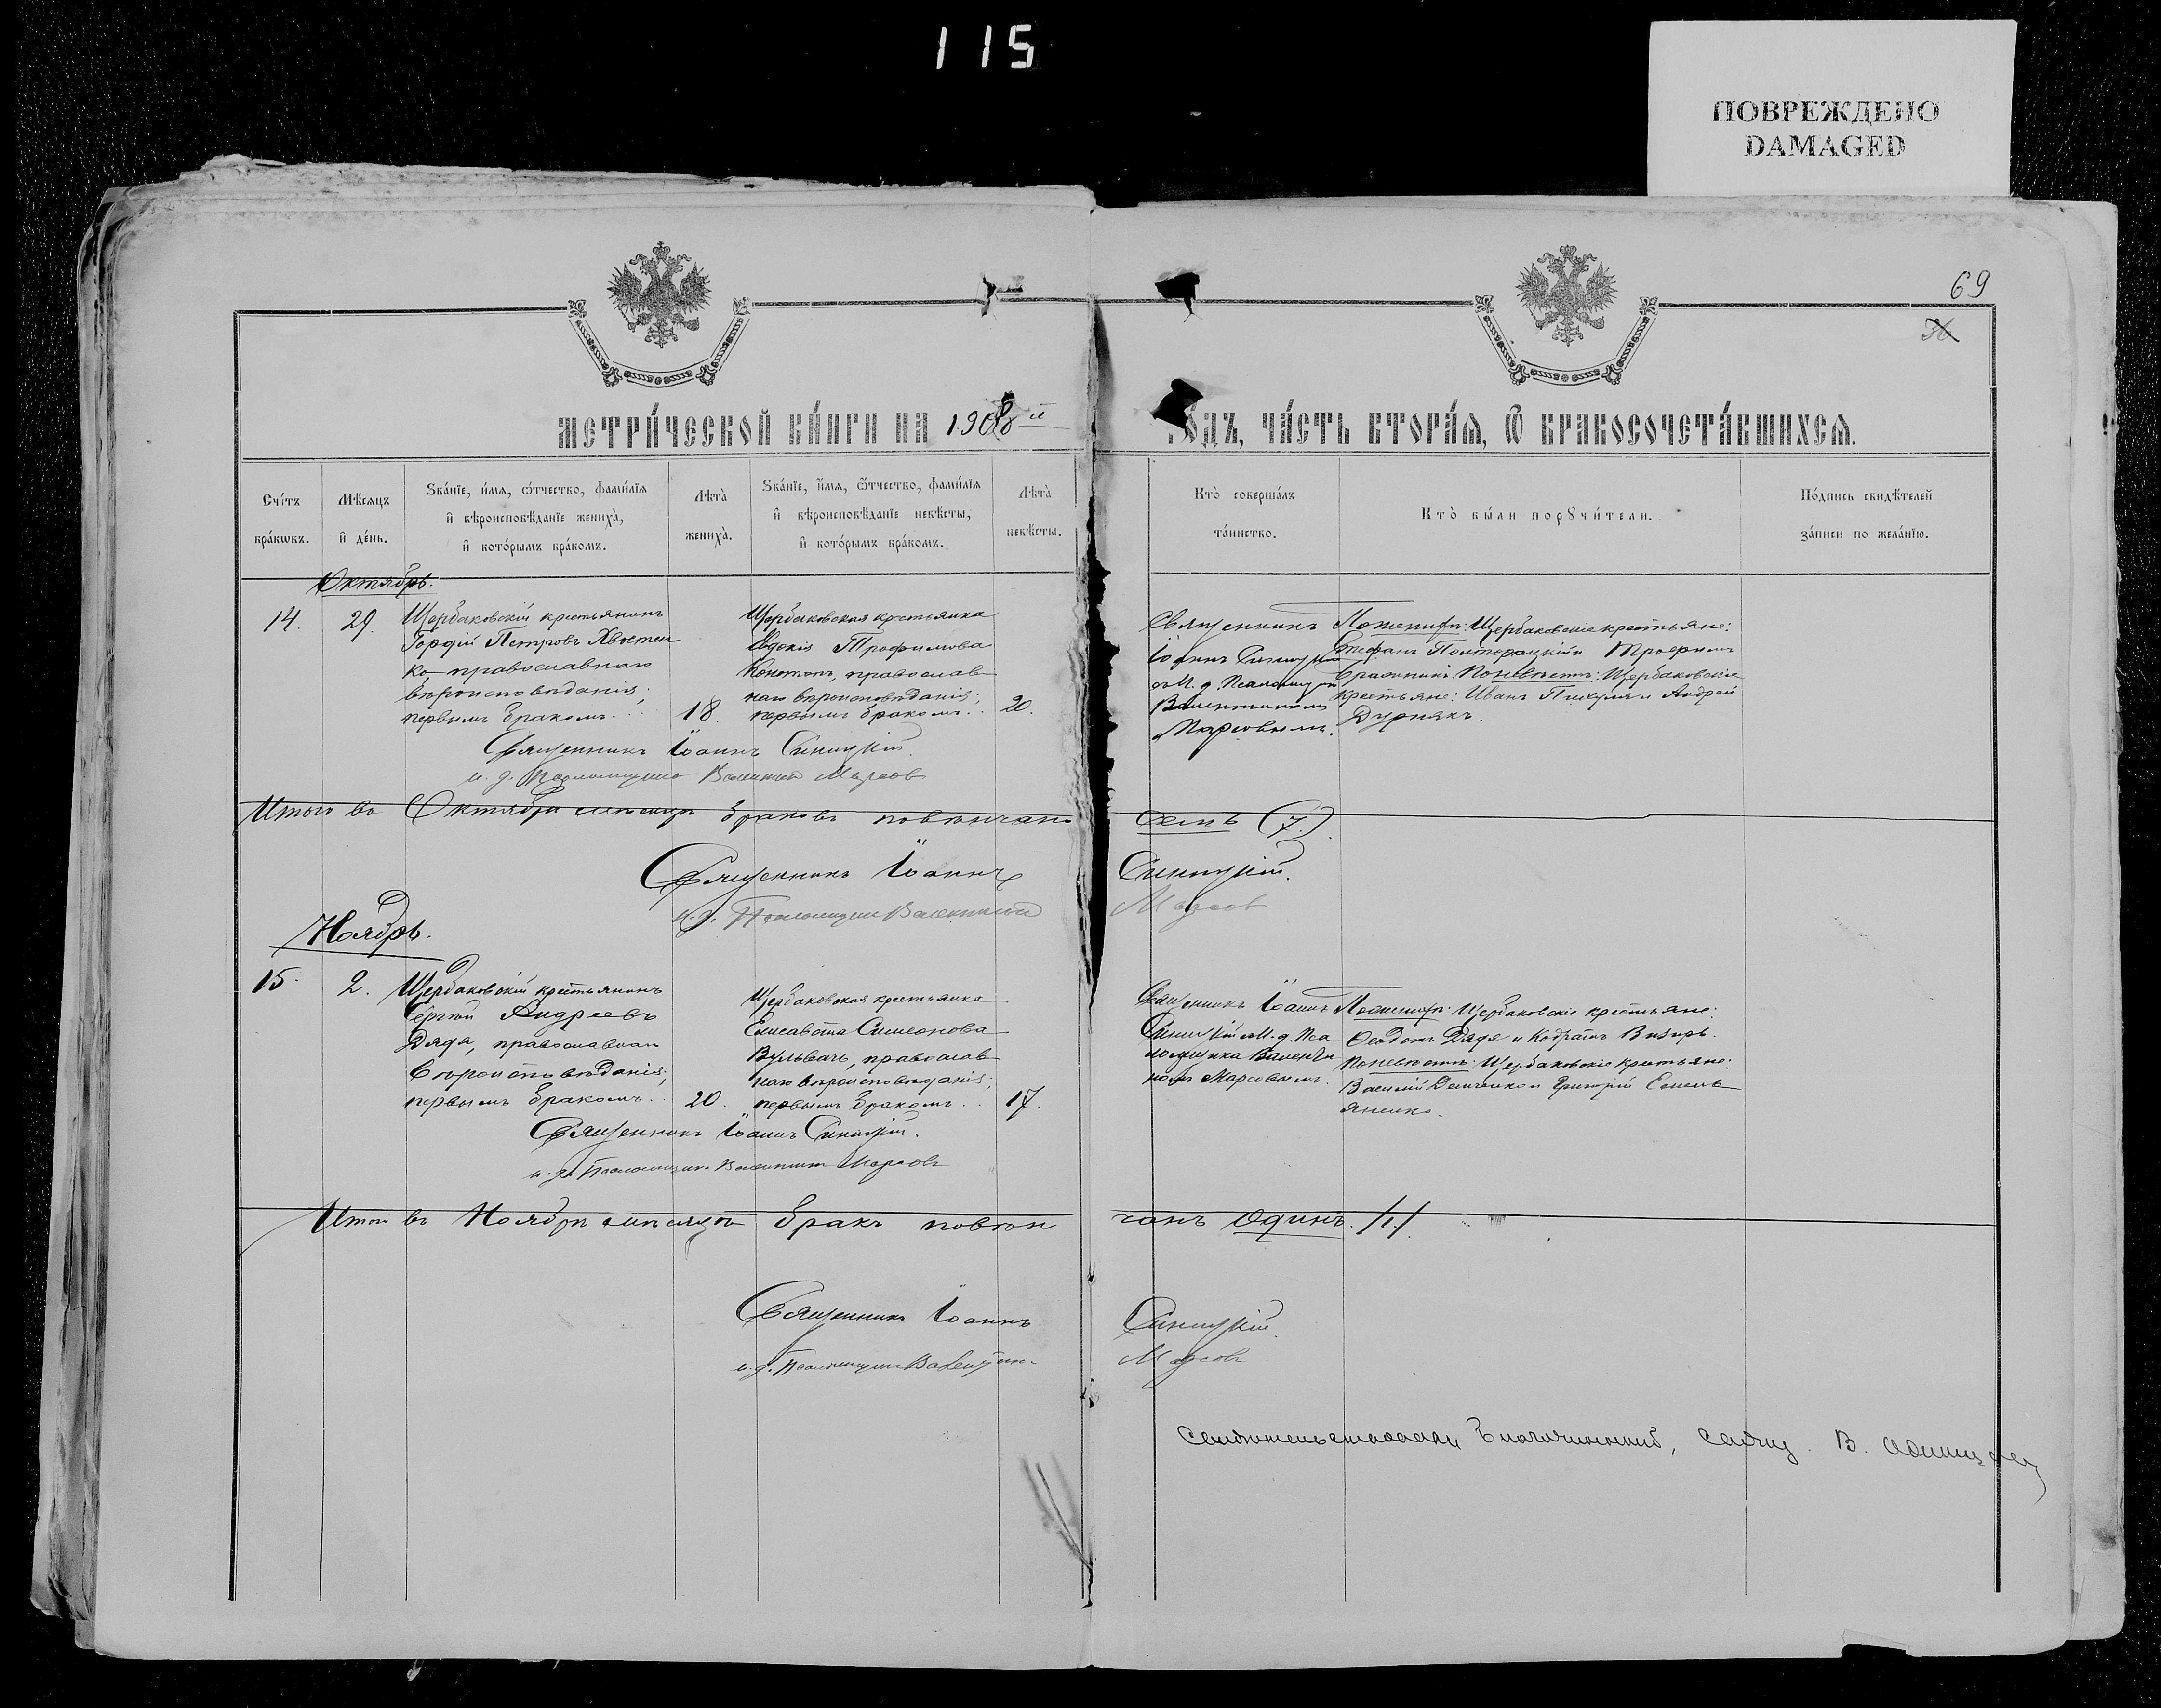 115
ПОВРЕЖДЕНО
DAMAGED
69
МЕТРИ́ЧЕСКОЙ КНИ́ГИ НА 1908 й
ОДЪ, ЧА́СТЬ ВТОРА́Ѧ, Ѿ БРАКОСОЧЕТА́ВШИХСѦ.
Сче́тъ
бра́кωвъ.
Мѣ́сѧцъ
и҆ де́нь.
Ѕва́нїе, и҆́мѧ, ѻ҆́тчество, фами́лїѧ
и҆ вѣроисповѣ́данїе жениха̀,
и҆ кото́рымъ бра́комъ.
Лѣ́та̀
жениха̀.
Ѕва́нїе, и҆́мѧ, ѻ҆́тчество, фами́лїѧ
и҆ вѣроисповѣ́данїе невѣ́сты,
и҆ кото́рымъ бра́комъ.
Лѣ́та̀
невѣ́сты.
Кто̀ соверша́лъ
та́инство.
Кто̀ бы́ли порꙋчи́тели.
По́дпись свидѣ́телей
за́писи по жела́нїю.
Октябрь.
14.
29.
Щербаковскій крестьянинъ
Гордій Петровъ Хвостен
ко, православнаго
вѣроисповѣданія;
первымъ бракомъ...
18.
Щербаковская крестьянка
Евдокія Трофимова
Конотопъ, православ
наго вѣроисповѣданія;
первымъ бракомъ...
20.
Священникъ
Іоаннъ Синицкій
съ И. д. Псаломщика
Валентиномъ
Марсовымъ.
По женихѣ: Щербаковскіе крестьяне:
Стефанъ Полторацкій и Трофимъ
По невѣстѣ: Щербаковскіе
крестьяне: Иванъ и Андрей
Дурнякъ.
Священникъ Іоаннъ Синицкій.
и. д. Псаломщика Валентинъ Марсовъ
Итого въ Октябрѣ мѣсяцѣ браковъ повѣнчано семь (7.)
Священникъ Іоаннъ Синицкій.
и. д. Псаломщика Валентинъ Марсовъ
Ноябрь.
15.
2.
Щербаковскій крестьянинъ
Сергѣй Андреевъ
Дядя, православнаго
вѣроисповѣданія;
первымъ бракомъ..
20.
Щербаковская крестьянка
Елисавета Симеонова
Вульвачъ, православ
наго вѣроисповѣданія;
первымъ бракомъ...
17.
Священникъ Іоаннъ
Синицкій съ И. д. Пса
ломщика Валенти
номъ Марсовымъ.
По женихѣ: Щербаковскіе крестьяне:
Ѳеодотъ Дядя и Кодратъ Визиръ.
По невѣстѣ: Щербаковскіе крестьяне:
Василій Демченко и Григорій Емель
яненко.
Священникъ Іоаннъ Синицкій.
и. д. Псаломщика Валентинъ Марсовъ
Итого въ Ноябрѣ мѣсяцѣ бракъ повѣн чанъ одинъ. /1./
Священникъ Іоаннъ Синицкій.
и. д. Псаломщика Валентинъ Марсовъ
благочинный, свящ. В.